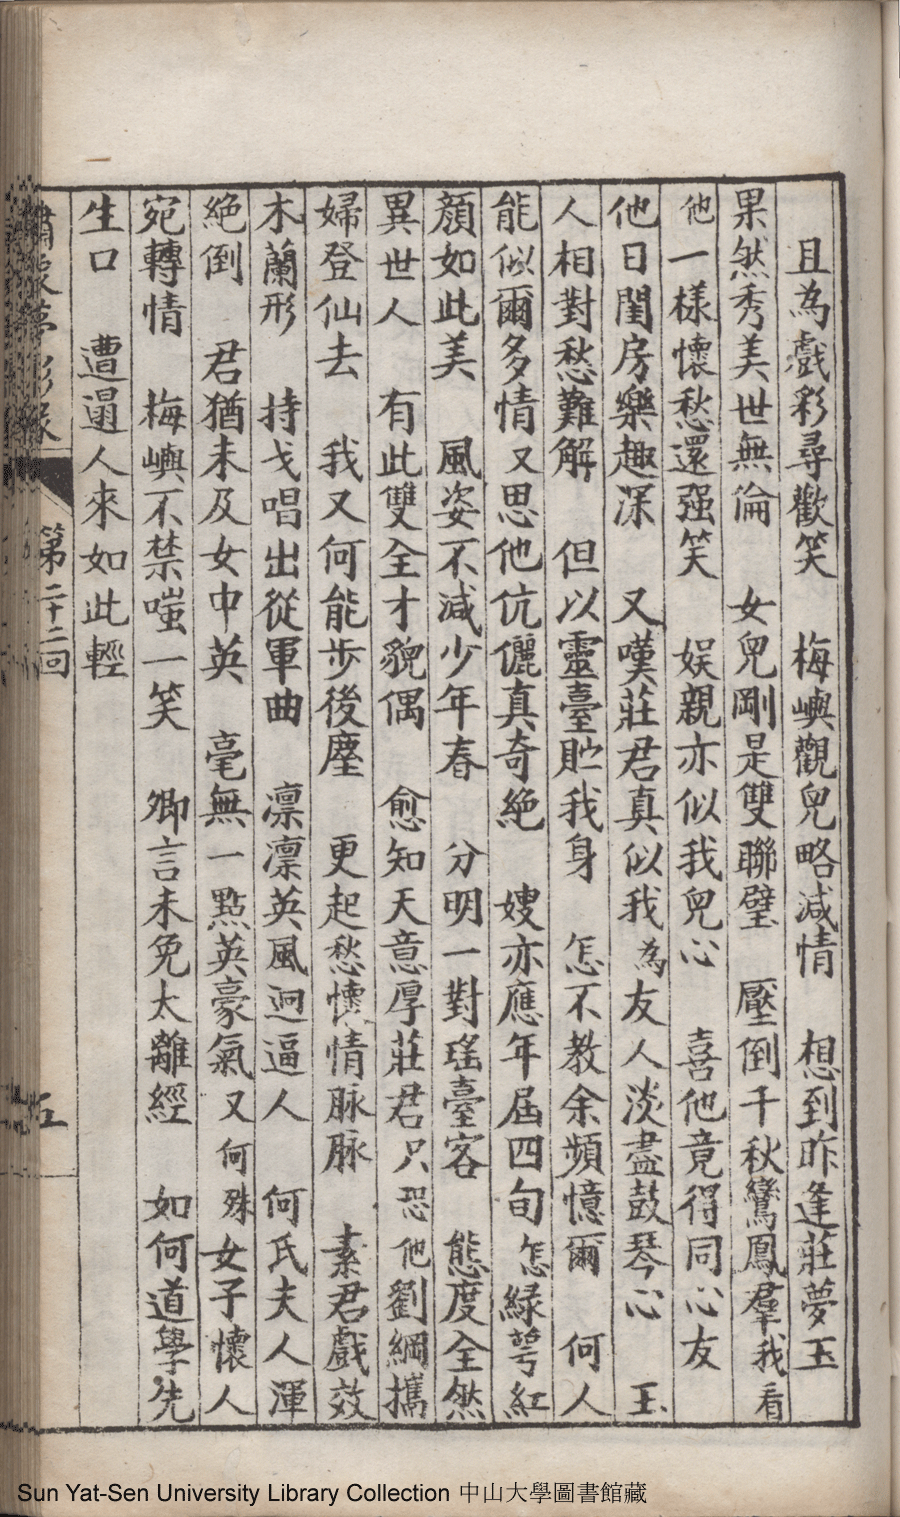 且為戲彩尋歡笑　梅嶼觀兒略減情　想到昨逢莊夢玉
果然秀美世無倫　女兒剛是雙聯璧　壓倒千秋鸞鳳羣我看
他一樣懷愁還强笑　娱親亦似我兒心　喜他竟得同心友
他日閨房樂趣深　又嘆莊君真似我為友人淡盡鼓琴心　玉
人相對愁難解　但以靈臺貯我身　怎不教余頻憶爾　何人
能似爾多情又思他伉儷真奇絕　嫂亦應年届四旬怎緑萼紅
顏如此美　風姿不减少年春　分明一對瑤臺客　態度全然
異世人　有此雙全才貌偶　愈知天意厚莊君只恐他劉綱攜
婦登仙去　我又何能步後塵　更起愁懷情脉脉　素君戲效
木蘭形　持戈唱出從軍曲　凛凛英風迥逼人　何氏夫人渾
絕倒　君猶未及女中英　毫無一點英豪氣又何殊女子懷人
宛轉情　梅嶼不禁嗤一笑　卿言未免太離經　如何道學先
生口　遭逿人來如此輕
第二十二回
五
Sun Yat-Sen University Library Collection 中山大學圖書館藏